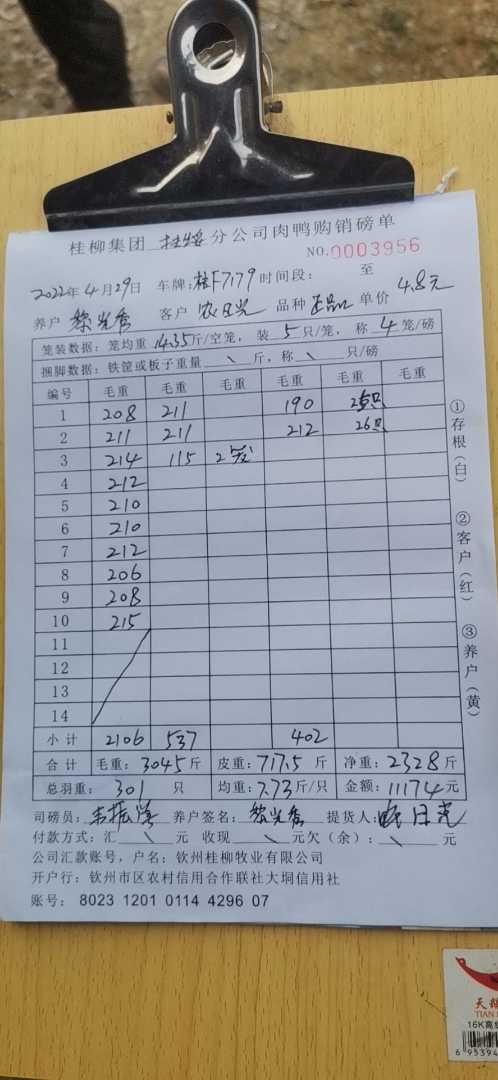 桂柳集团 分公司肉鸭购销磅单
NO.0003956
2022年4月29日 车牌:桂F7179 时间段: 至
养户 黎光秀 客户 农日光 品种 正品 单价 4.8元
笼装数据:笼均重 14.35 斤/空笼,装 5 只/笼,称 4 笼/磅
捆脚数据:铁筐或板子重量 \ 斤,称 \ 只/磅
编号 毛重 毛重 毛重 毛重 毛重 毛重
1 208 211 190 25只
2 211 211 212 26只
3 214 115 2笼
4 212
5 210
6 210
7 212
8 206
9 208
10 215
11
12
13
14
小计 2106 537 402
合计 毛重:3045斤 皮重:717.5 斤 净重:2328斤
总羽重: 301 只 均重:7.73斤/只 金额:11174元
司磅员: 养户签名:黎光秀 提货人:农日光
付款方式:汇 \ 元 收现 \ 元欠(余): \ 元
公司汇款账号,户名:钦州桂柳牧业有限公司
开户行:钦州市区农村信用合作联社大垌信用社
账号: 8023 1201 0114 4296 07
①存根(白)
②客户(红)
③养户(黄)
TIAN
16K高
6 95394